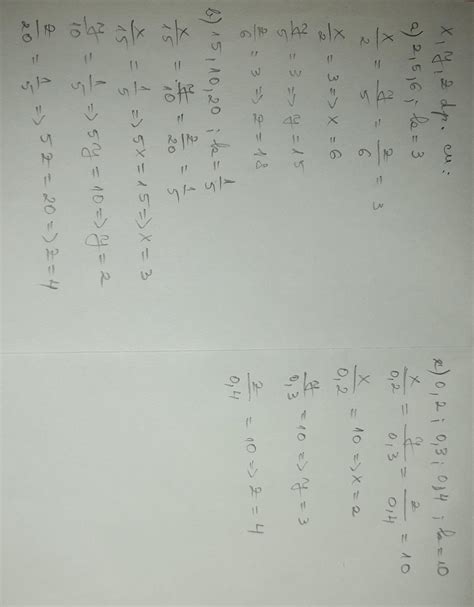 x, y, z dp. cu:
a) 2, 5, 6 ; k = 3
x/2 = y/5 = z/6 = 3
x/2 = 3 => x = 6
y/5 = 3 => y = 15
z/6 = 3 => z = 18
b) 15, 10, 20 ; k = 1/5
x/15 = y/10 = z/20 = 1/5
x/15 = 1/5 => 5x = 15 => x = 3
y/10 = 1/5 => 5y = 10 => y = 2
z/20 = 1/5 => 5z = 20 => z = 4
c) 0,2 ; 0,3 ; 0,4 ; k = 10
x/0,2 = y/0,3 = z/0,4 = 10
x/0,2 = 10 => x = 2
y/0,3 = 10 => y = 3
z/0,4 = 10 => z = 4